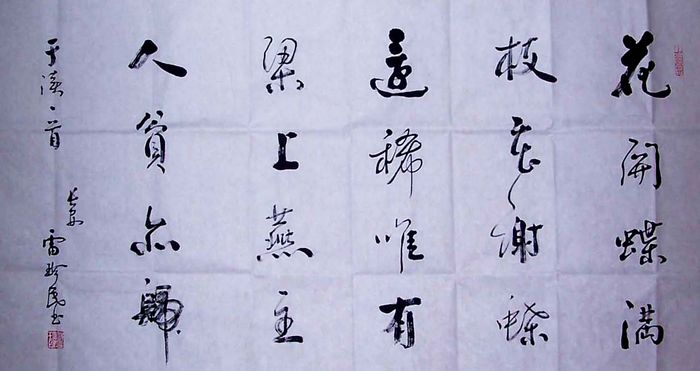 花開蝶滿
枝花謝蝶
還稀唯有
梁上燕主
人貧亦歸
于濆一首
長安 雷珍民书